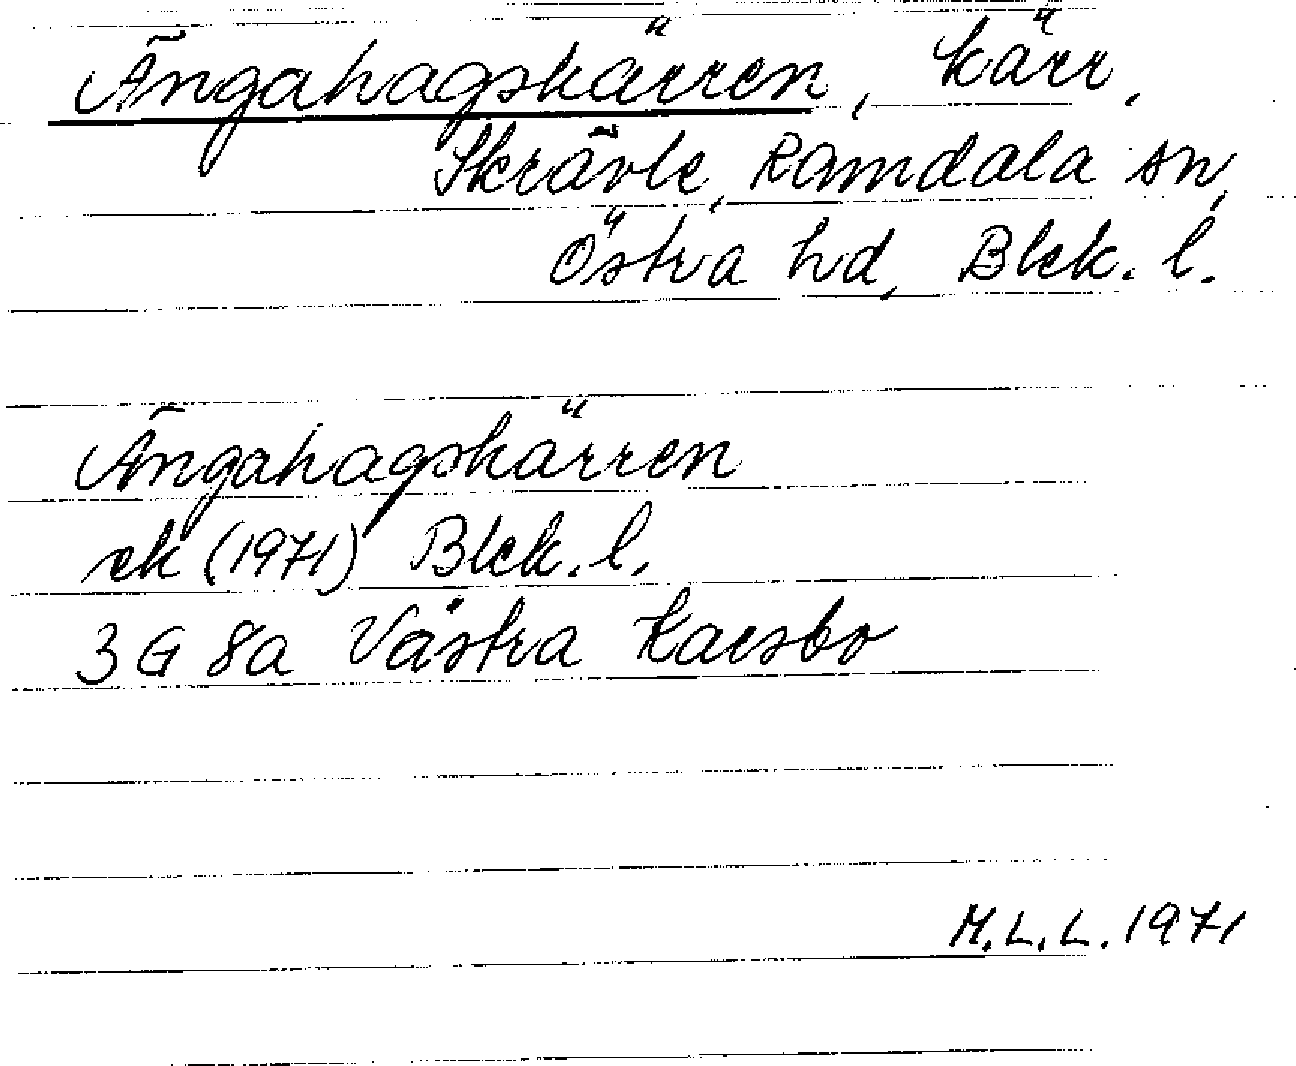 Ängahagskärren, kärr,
Skrävle, Ramdala sn,
Östra hd, Blek. l.
Ängahagskärren
ek (1971) Blek. l.
3 G 8a Västra
M.L.L. 1971